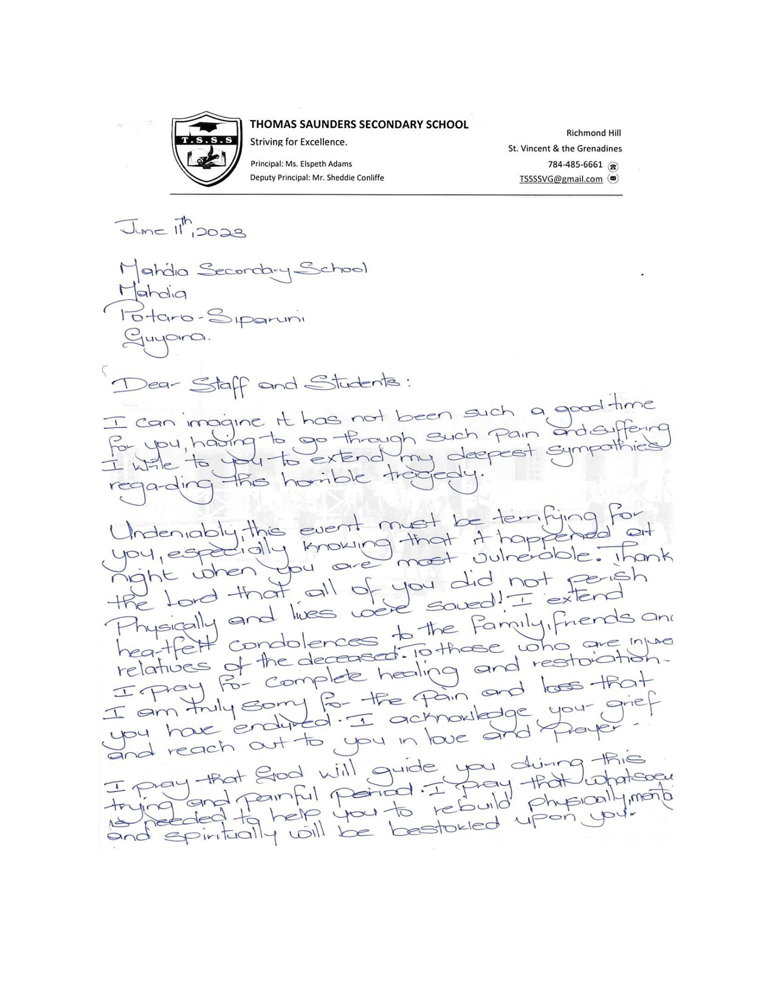 T.S.S.S
THOMAS SAUNDERS SECONDARY SCHOOL
Striving for Excellence.
Principal: Ms. Elspeth Adams
Deputy Principal: Mr. Sheddie Conliffe
Richmond Hill
St. Vincent & the Grenadines
784-485-6661
TSSSSVG@gmail.com
June 11th, 2023
Mahdia Secondary School
Mahdia
Potaro-Siparuni
Guyana.
Dear Staff and Students:
I can imagine it has not been such a good time
for you, having to go through such pain and suffering
I write to you to extend my deepest sympathies
regarding this horrible tragedy.
Undeniably, this event must be terrifying for
you, especially knowing that it happened at
night when you are most vulnerable. Thank
the Lord that all of you did not perish
Physically and lives were saved! I extend
heartfelt condolences to the family, friends and
relatives of the deceased. To those who are injure
I pray for complete healing and restoration.
I am truly sorry for the pain and loss that
you have endured. I acknowledge your grief
and reach out to you in love and prayer.
I pray that God will guide you during this
trying and painful period. I pray that whatsoev
is needed to help you to rebuild physically, menta
and spiritually will be bestowed upon you.